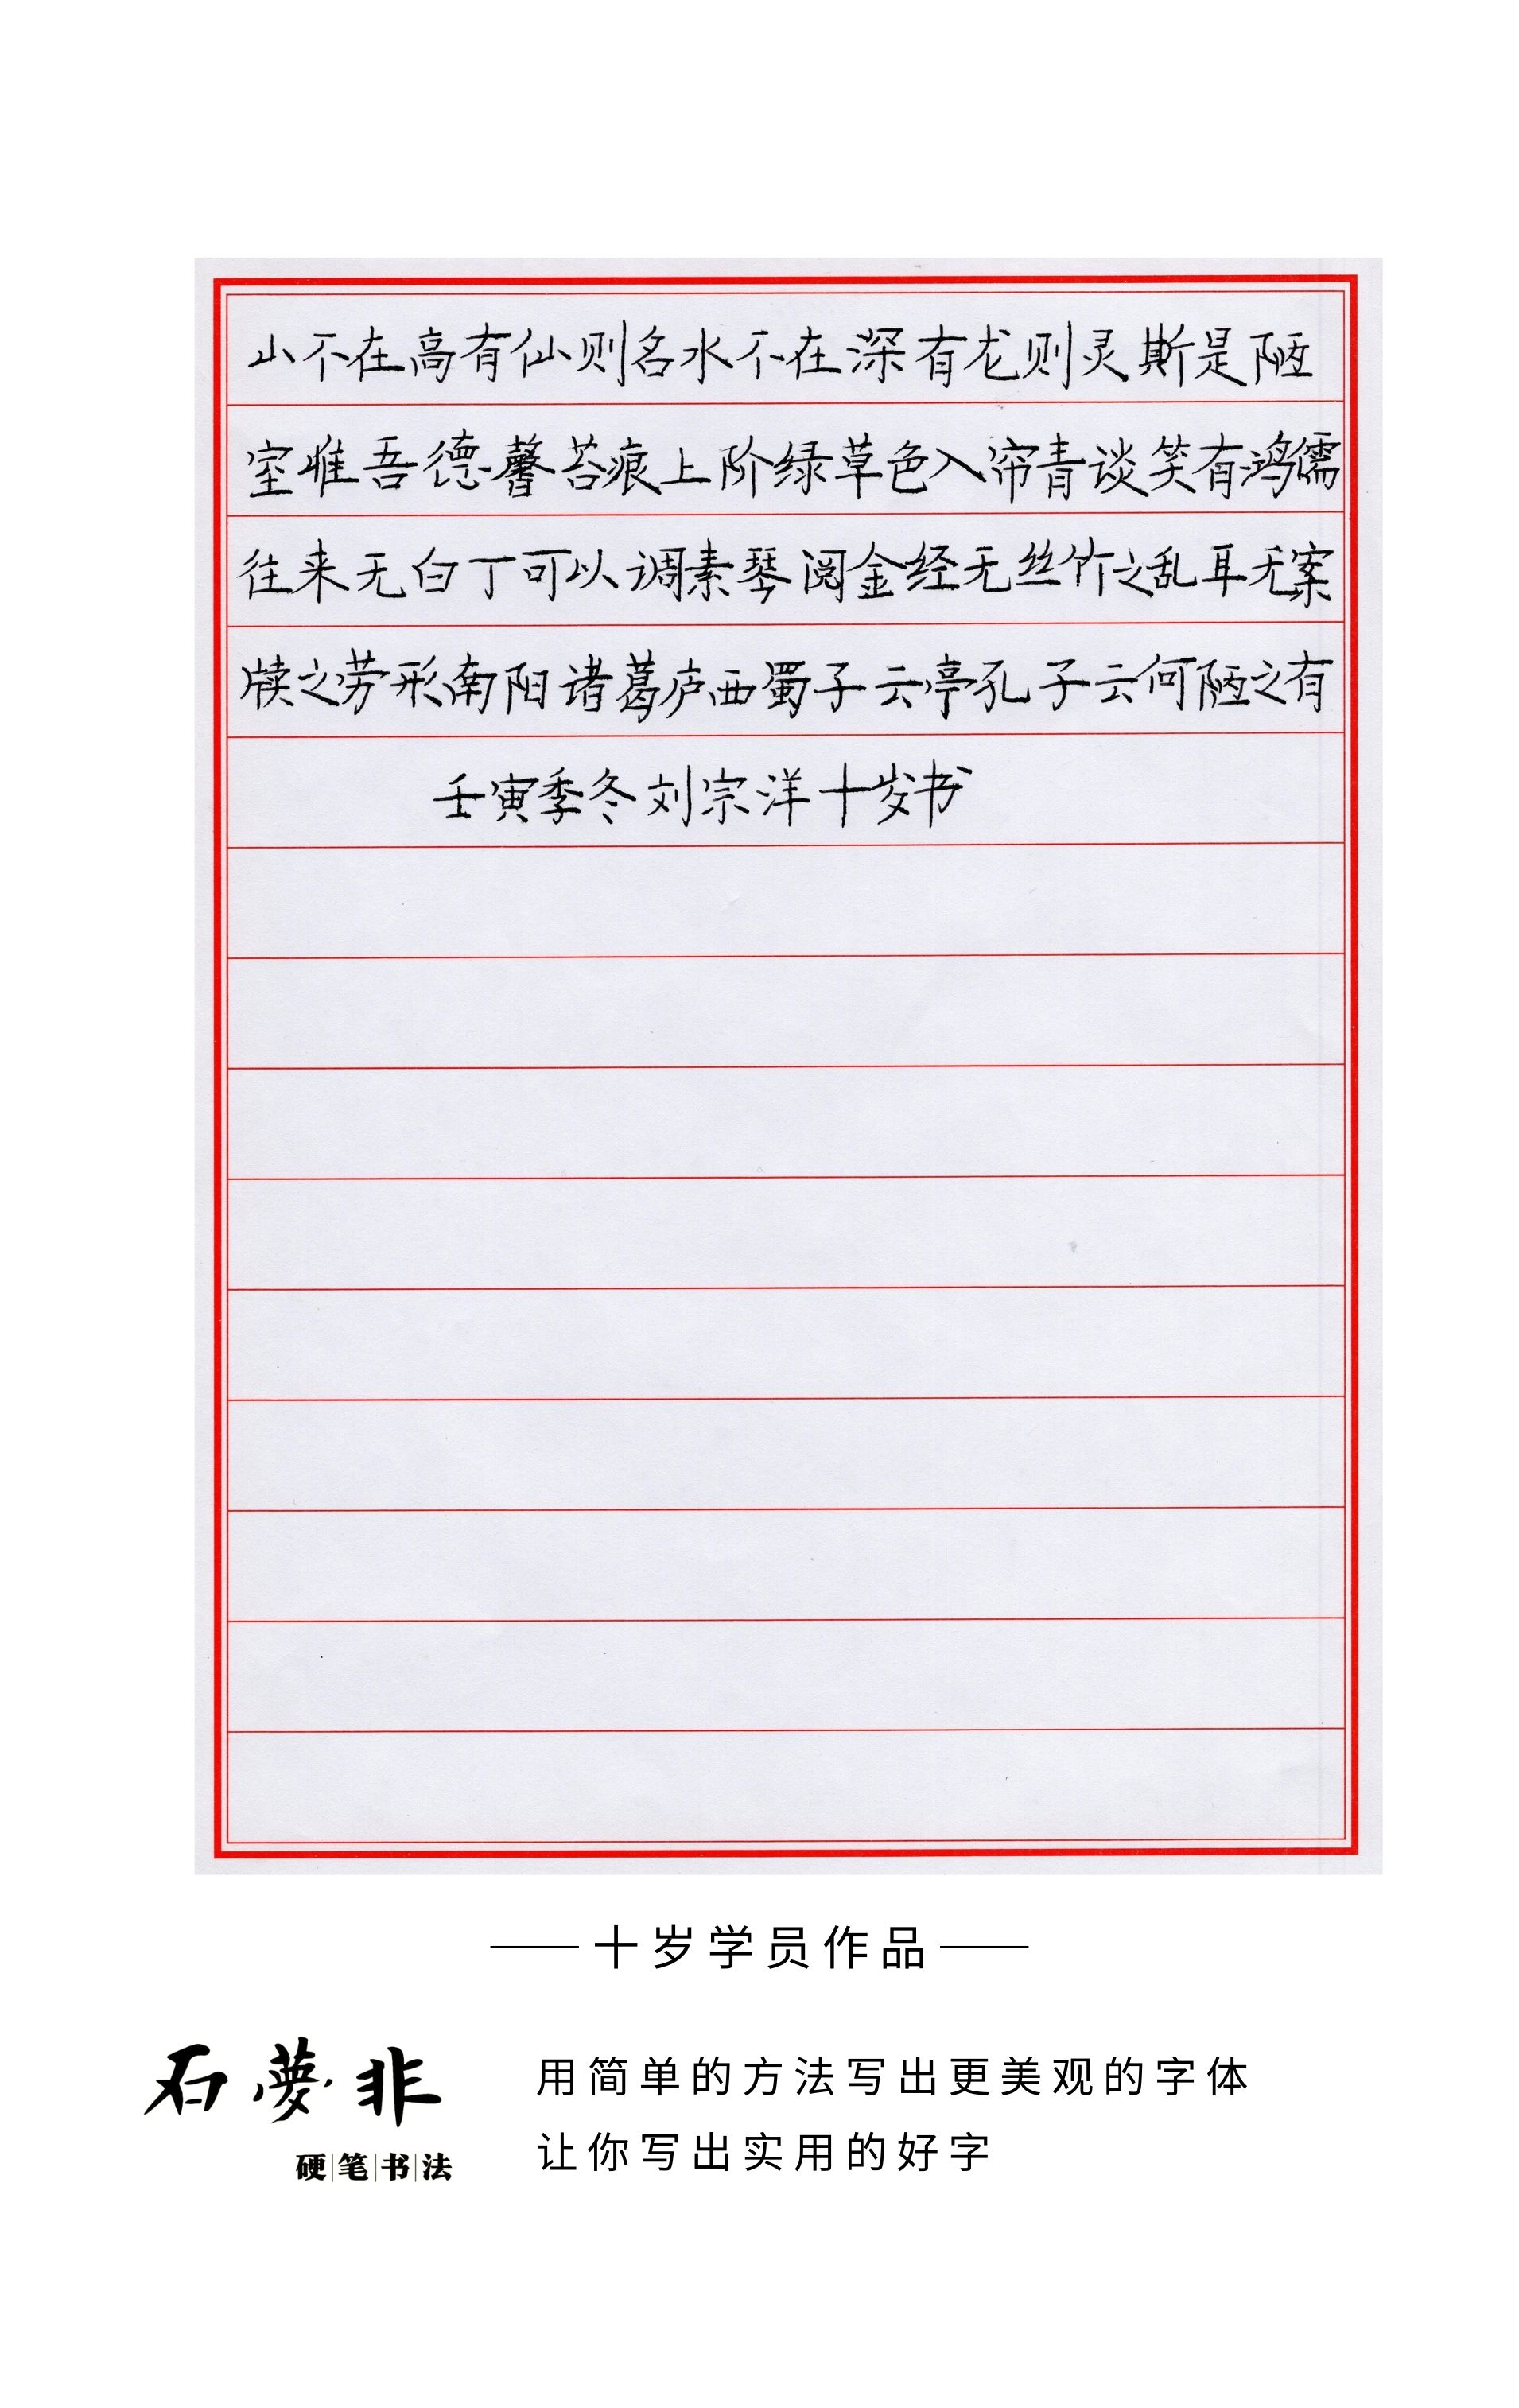 山不在高有仙则名水不在深有龙则灵斯是陋
室惟吾德馨苔痕上阶绿草色入帘青谈笑有鸿儒
往来无白丁可以调素琴阅金经无丝竹之乱耳无案
牍之劳形南阳诸葛庐西蜀子云亭孔子云何陋之有
壬寅季冬刘宗洋十岁书
十岁学员作品
石夢非
硬笔书法
用简单的方法写出更美观的字体
让你写出实用的好字